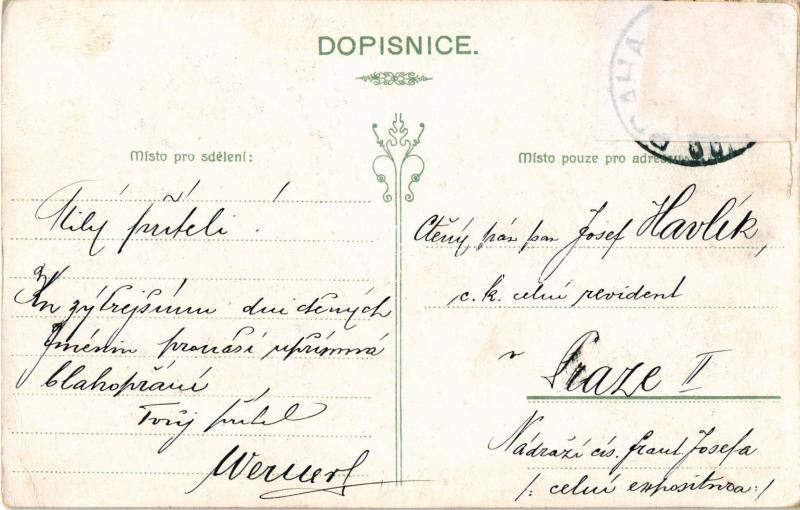 DOPISNICE.
Místo pro sdělení:
Milý příteli!
Ku zýtrejšímu dni ctěných
Jmenin pronáší upřímná
blahopřání
Tvůj přítel
Werner
Místo pouze pro adresu
Ctěný pán pan Josef Havlík,
c. k. celní revident
v Praze II
Nádraží cís. Frant. Josefa
/: celní expositura :/